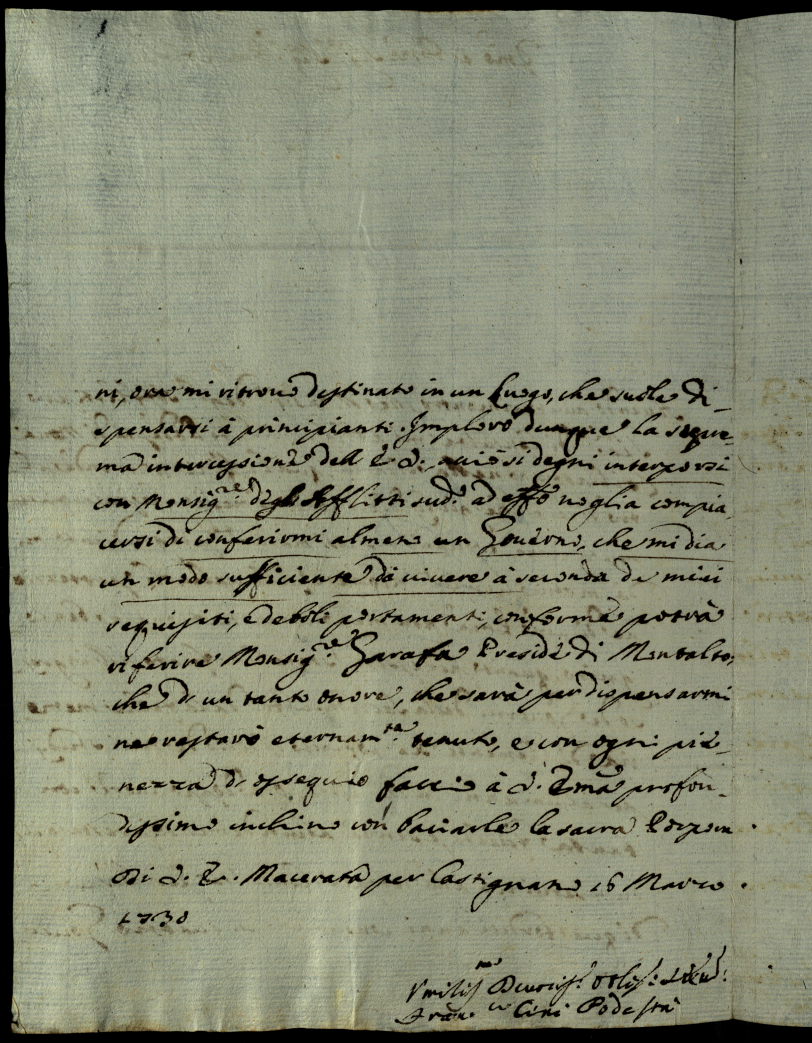 ni, ora mi ritrovo destinato in un luogo, che suole di-
spensarsi à principianti. Imploro dunque la supre-
ma intercessione dell' E. V., acciò si degni interporsi
con Monsig.re degl'Afflitti sud.o ad effo voglia compia
cersi di conferirmi almeno un Governo, che mi dia
un modo sufficiente di vivere à seconda de miei
requisiti, e deboli portamenti, conforme potrà
riferire Monsig.re Carafa Preside di Montalto,
che di un tanto onore, che sarà per dispensarmi
ne restarò eternam.te tenuto, e con ogni pie-
nezza di ossequio faccio à V. Em.a profon-
dissimo inchino con baciarle la sacra Porpora
Di V. E. Macerata per Castignano 16 Marzo
1730
Umiliss.mo Devotiss.o Obblig.o
Fran.co Cini Podestà